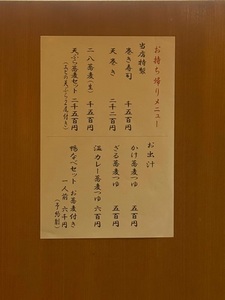 お持ち帰りメニュー
当店特製
巻き寿司 千五百円
天巻き 二千二百円
二八蕎麦(生) 千五百円
天ぷら蕎麦セット 二千五百円
お出汁
かけ蕎麦つゆ 五百円
ざる蕎麦つゆ 五百円
温カレー蕎麦つゆ 六百円
鴨なべセット お蕎麦付き
一人前 六千円
(予約制)